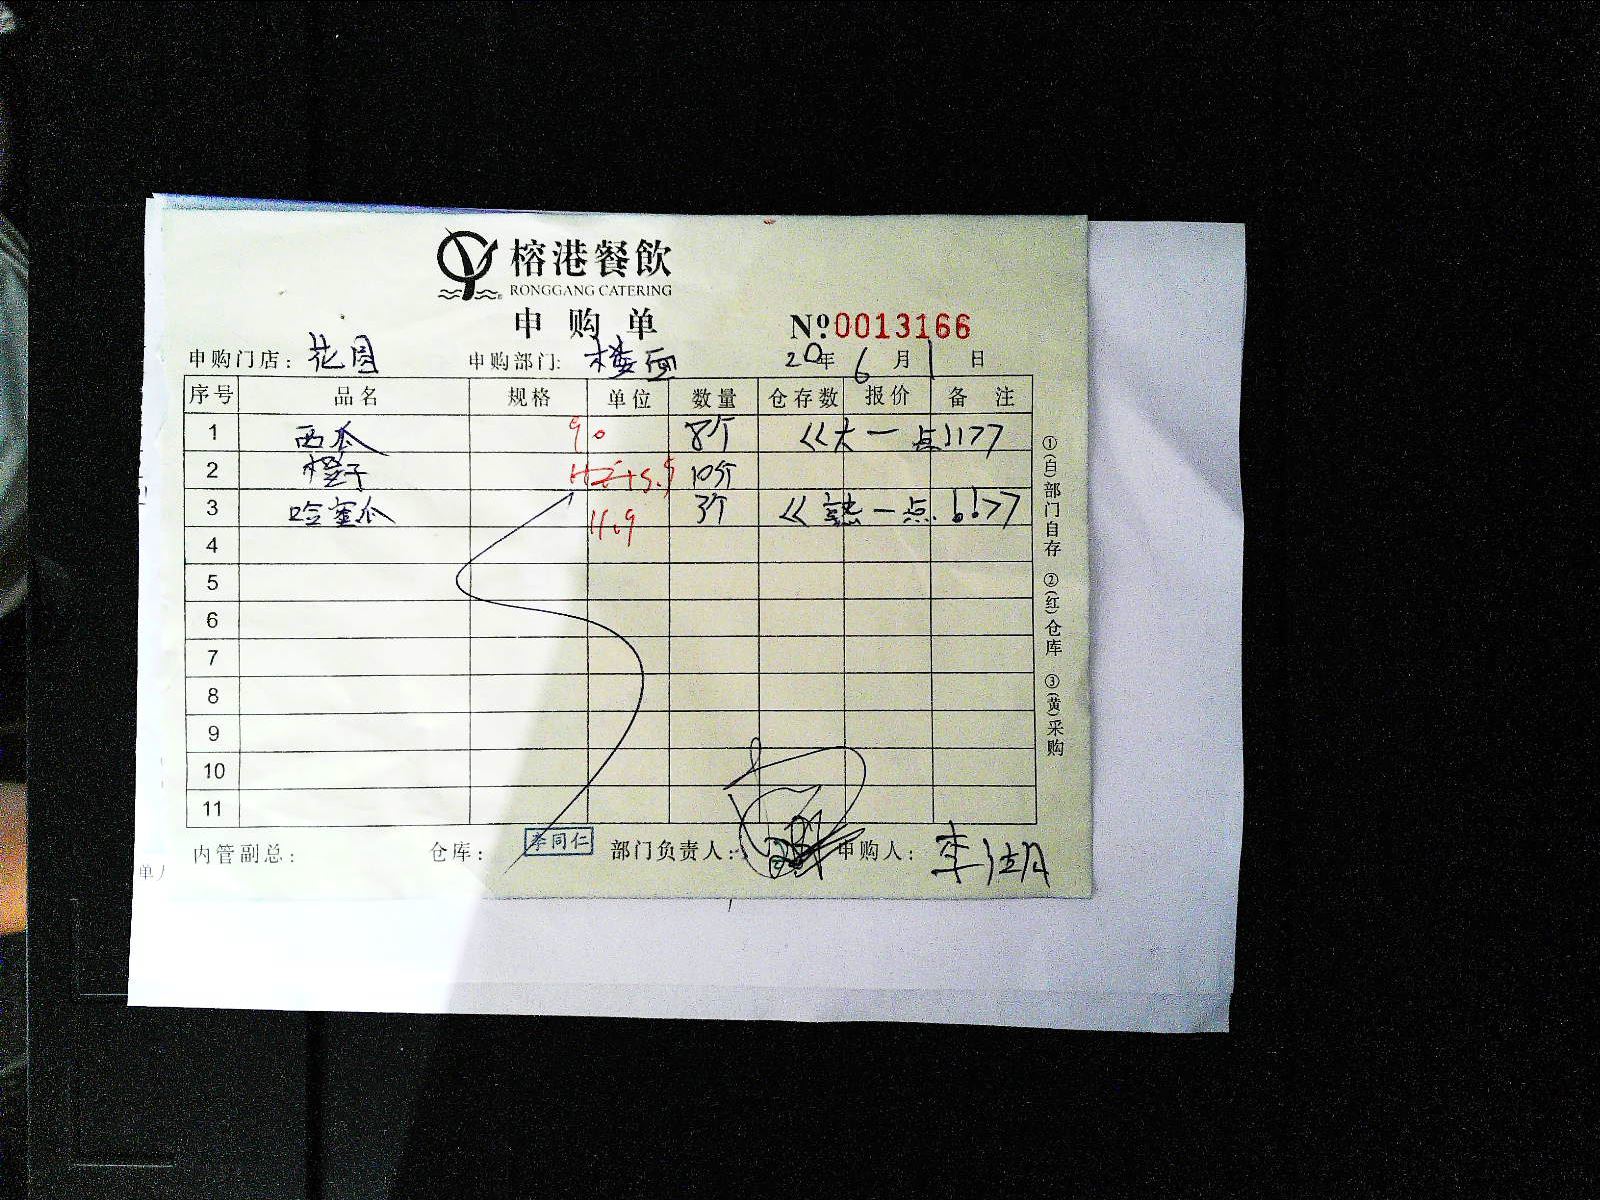 榕港餐飲
RONGGANG CATERING
申购单
№:0013166
申购门店: 花园 申购部门: 楼面 20年6月1日
序号 品名 规格 单位 数量 仓存数 报价 备注
1 西瓜 90 8个 《大一点!!》
2 橙子 10斤
3 哈蜜瓜 11.9 3个 《熟一点!!》
4
5
6
7
8
9
10
11
①(白)部门自存 ②(红)仓库 ③(黄)采购
内管副总: 仓库: 李同仁 部门负责人: 申购人: